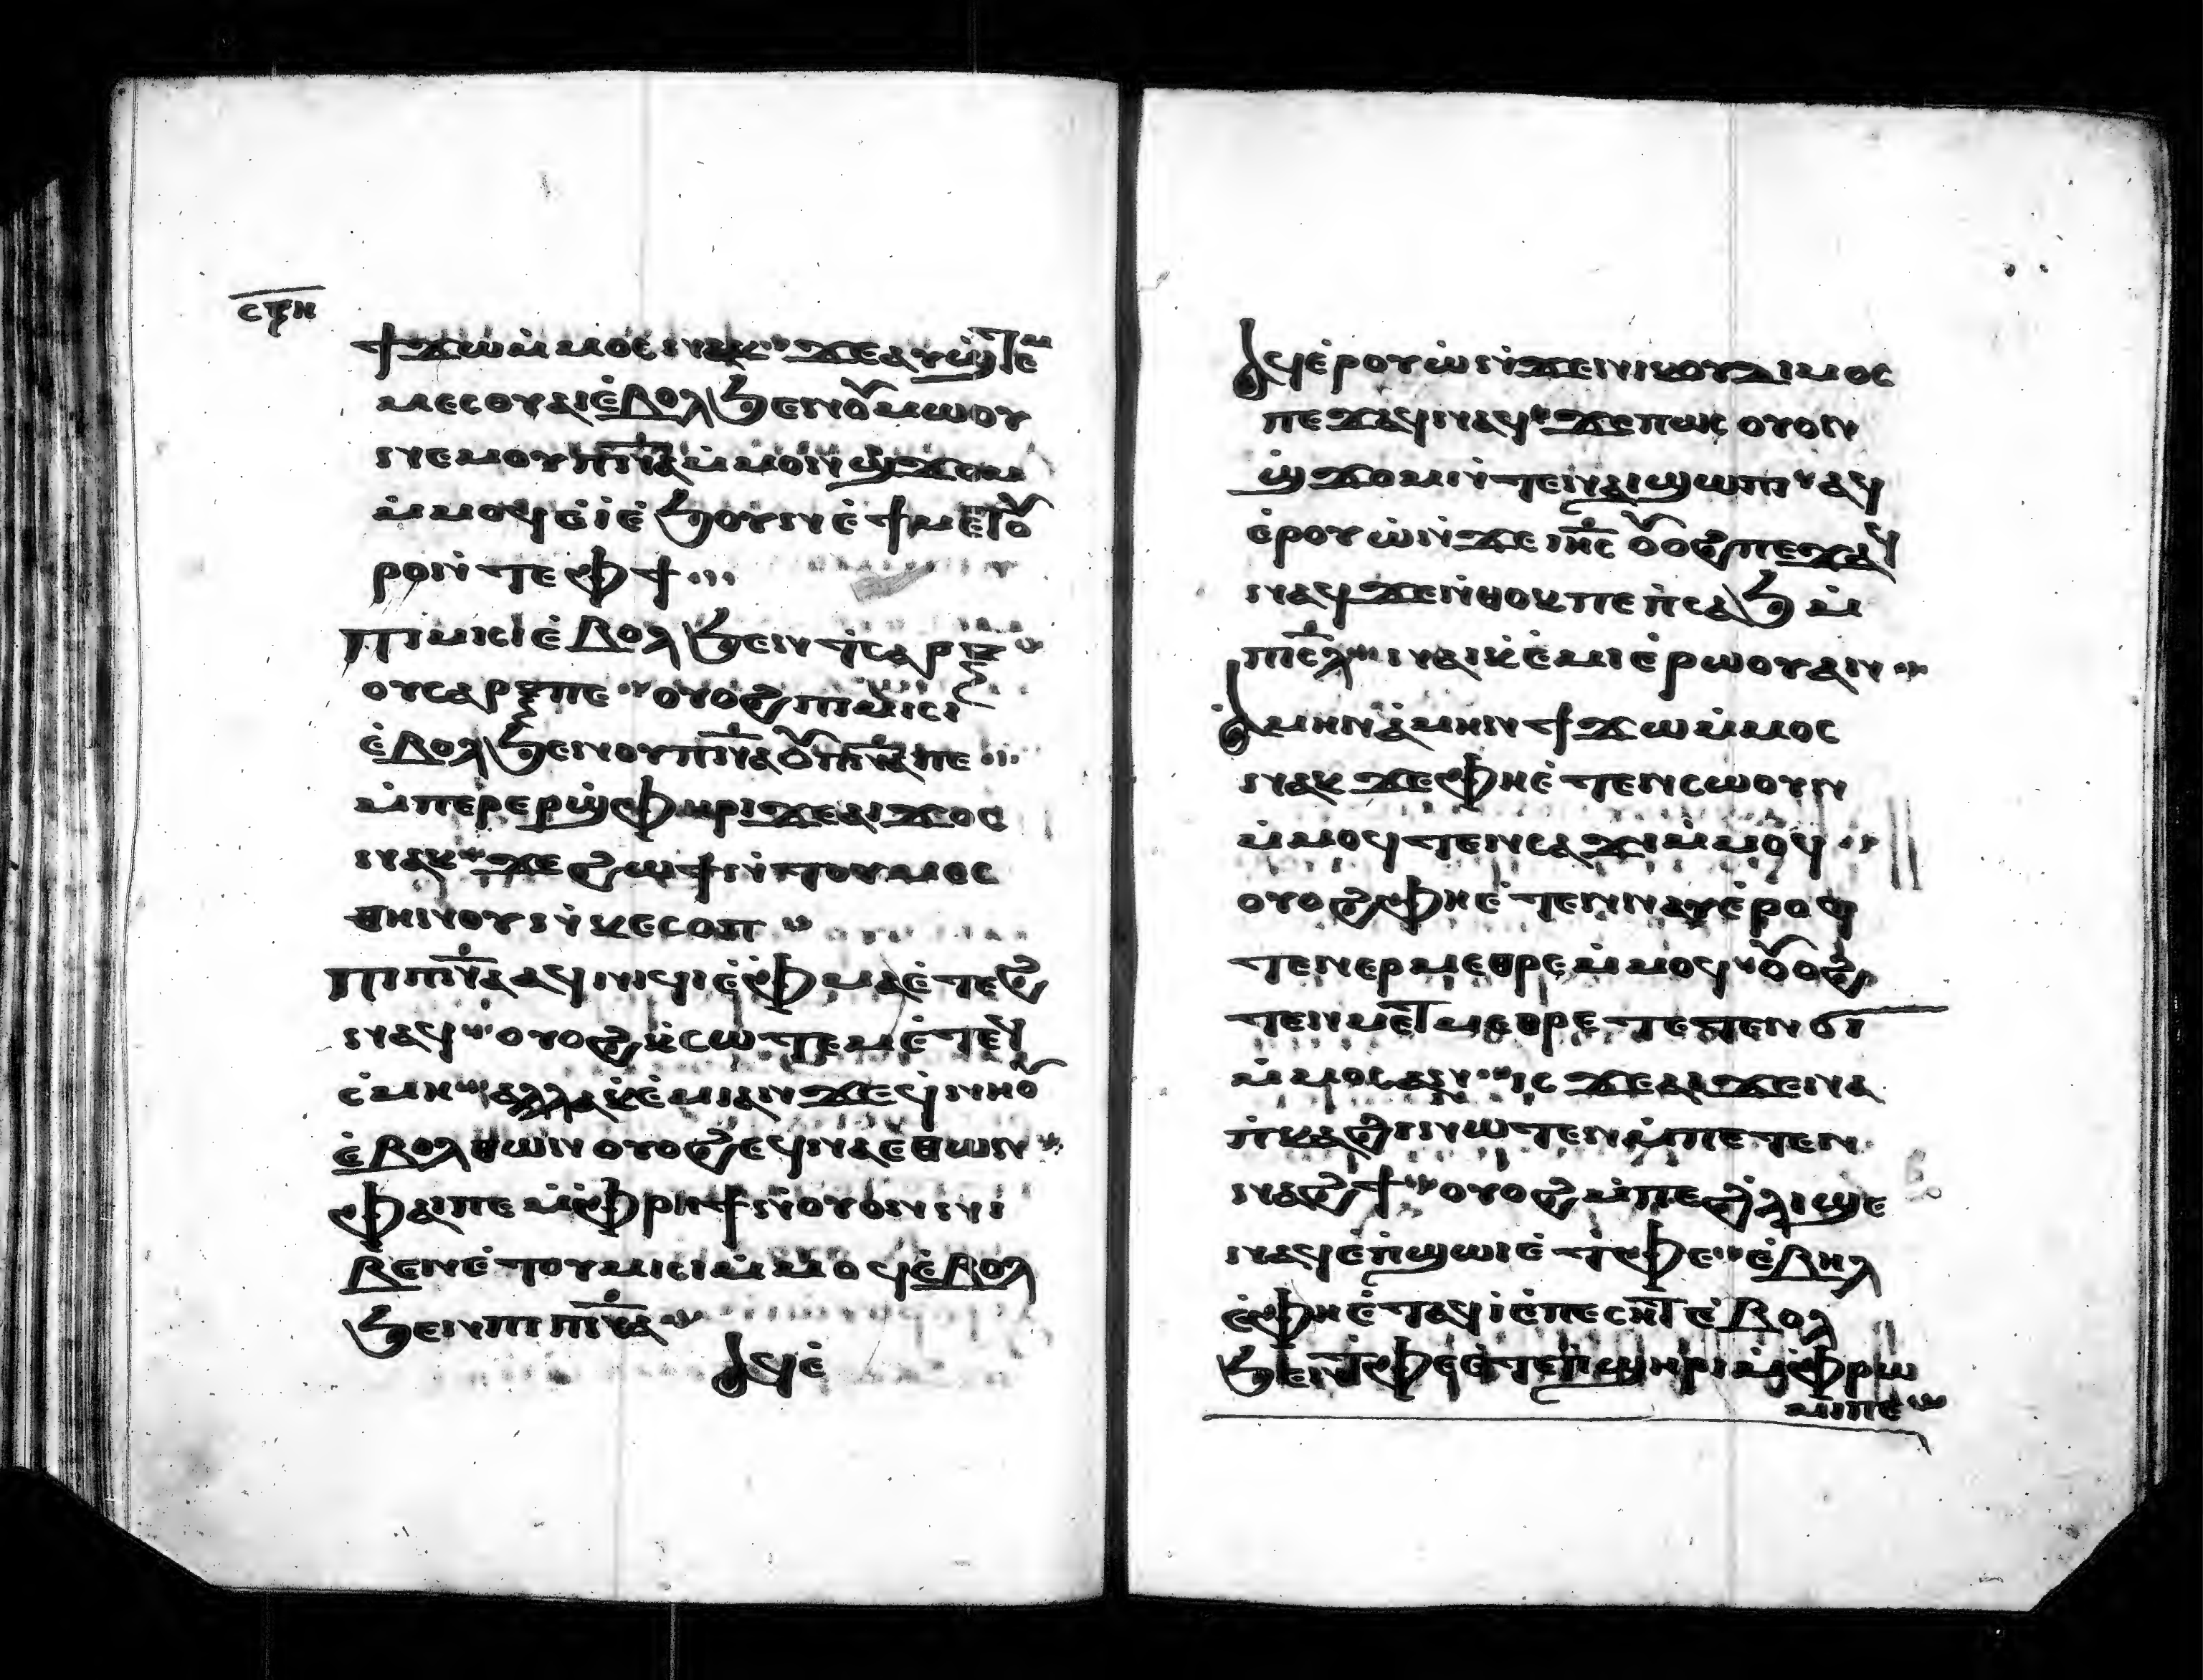 ϯϫⲱⲙ̇ⲙⲟⲥⲛⲁⲕ ϫⲉⲁⲩϣ̇ⲧⲉⲙ
ⲙⲉⲥⲟⲩⲁⲓⲉ̇ⲃⲟⲗϧⲉⲛⲟⲩⲙⲱⲟⲩ
ⲛⲉⲙⲟⲩⲡ̅ⲛ̅ⲁ̅ⲙ̇ⲙⲟⲛϣ̇ϫⲟⲙ
ⲙ̇ⲙⲟϥⲉ̇ⲓ̇ⲉ̇ϧⲟⲩⲛⲉ̇ϯⲙⲉⲧⲟⲩ
ⲣⲟⲛ̇ⲧⲉⲫϯ
ⲡⲓⲙⲓⲥⲓⲉ̇ⲃⲟⲗϧⲉⲛⲧ̇ⲥⲁⲣⲝ
ⲟⲩⲥⲁⲣⲝⲡⲉ ⲟⲩⲟϩⲡⲓⲙⲓⲥⲓ
ⲉ̇ⲃⲟⲗϧⲉⲛⲟⲩⲡ̅ⲛ̅ⲁ̅ⲟⲩⲡ̅ⲛ̅ⲁ̅ⲡⲉ
ⲙ̇ⲡⲉⲣⲉⲣϣ̇ⲫⲏⲣⲓϫⲉⲁⲓϫⲟⲥ
ⲛⲁⲕ ϫⲉϩⲱϯⲛ̇ⲧⲟⲩⲙⲉⲥ
ⲑⲏⲛⲟⲩⲛ̇ⲕⲉⲥⲟⲡ
ⲡⲓⲡ̅ⲛ̅ⲁ̅ⲁϥⲛⲓϥⲓⲉ̇ⲫ̇ⲙⲁⲉ̇ⲧⲉϩ
ⲛⲁϥ ⲟⲩⲟϩⲕ̇ⲥⲱⲧⲉⲙⲉ̇ⲧⲉϥ
ⲥ̇ⲙⲏ ⲁⲗⲗⲁⲕ̇ⲉ̇ⲙⲓⲁⲛϫⲉϥ̇ⲛⲏⲟⲩ
ⲉ̇ⲃⲟⲗⲑⲱⲛⲟⲩⲟϩⲉϥⲛⲁⲉⲑⲱⲛ
ⲫⲁⲓⲡⲉⲙ̇ⲫ̇ⲣⲏϯⲛ̇ⲟⲩⲟⲛⲛⲓ
ⲃⲉⲛⲉ̇ⲧⲟⲩⲙⲓⲥⲓⲙ̇ⲙⲟϥⲉ̇ⲃⲟⲗ
ϧⲉⲛⲡⲓⲡ̅ⲛ̅ⲁ̅
ⲁϥⲉ̇
ⲁϥⲉ̇ⲣⲟⲩⲱ̇ⲛ̇ϫⲉⲛⲓⲕⲟⲩⲇⲓⲙⲟⲥ
ⲡⲉϫⲁϥⲛⲁϥ ϫⲉⲡⲱⲥ ⲟⲩⲟⲛ
ϣ̇ϫⲟⲙⲛ̇ⲧⲉⲛⲁⲓϣⲱⲡⲓ ⲁϥ
ⲉ̇ⲣⲟⲩⲱ̇ⲛ̇ϫⲉⲓⲏ̅ⲥ̅ ⲟⲩⲟϩⲡⲉϫⲁϥ
ⲛⲁϥϫⲉⲛ̇ⲑⲟⲕⲡⲉⲡ̇ⲥⲁϧ ⲙ̇
ⲡⲓⲥ̅ⲗ̅ ⲛⲁⲓⲕ̇ⲉ̇ⲙⲓⲉ̇ⲣⲱⲟⲩⲁⲛ
ⲁ̇ⲙⲏⲛⲁ̇ⲙⲏⲛϯϫⲱⲙ̇ⲙⲟⲥ
ⲛⲁⲕ ϫⲉⲫⲏⲉ̇ⲧⲉⲛⲥⲱⲟⲩⲛ
ⲙ̇ⲙⲟϥⲧⲉⲛⲥⲁϫⲓⲙ̇ⲙⲟϥ
ⲟⲩⲟϩⲫⲏⲉ̇ⲧⲉⲛⲛⲁⲩⲉ̇ⲣⲟϥ
ⲧⲉⲛⲉⲣⲙⲉⲑⲣⲉⲙ̇ⲙⲟϥ ⲟⲩⲟϩ
ⲧⲉⲛⲙⲉⲧⲙⲉⲑⲣⲉ ⲧⲉⲧⲉⲛϭⲓ
ⲙ̇ⲙⲟⲥⲁⲛ ⲓⲥ ϫⲉⲁⲓϫⲉⲛⲁ
ⲡ̇ⲕⲁϩⲓⲛⲱⲧⲉⲛⲙ̇ⲡⲉⲧⲉⲛ
ⲛⲁϩϯ ⲟⲩⲟϩⲙ̇ⲡⲉϩ̇ⲗⲓϣⲉ
ⲛⲁϥⲉ̇ⲡ̇ϣⲱⲓⲉ̇ⲧ̇ⲫⲉ ⲉ̇ⲃⲏⲗ
ⲉ̇ⲫⲏⲉ̇ⲧⲁϥⲓ̇ⲉ̇ⲡⲉⲥⲏⲧⲉ̇ⲃⲟⲗ
ϧⲉⲛⲧ̇ⲫⲉⲉ̇ⲧⲉⲡ̇ϣⲏⲣⲓⲙ̇ⲫ̇ⲣⲱ
ⲙⲓⲡⲉ